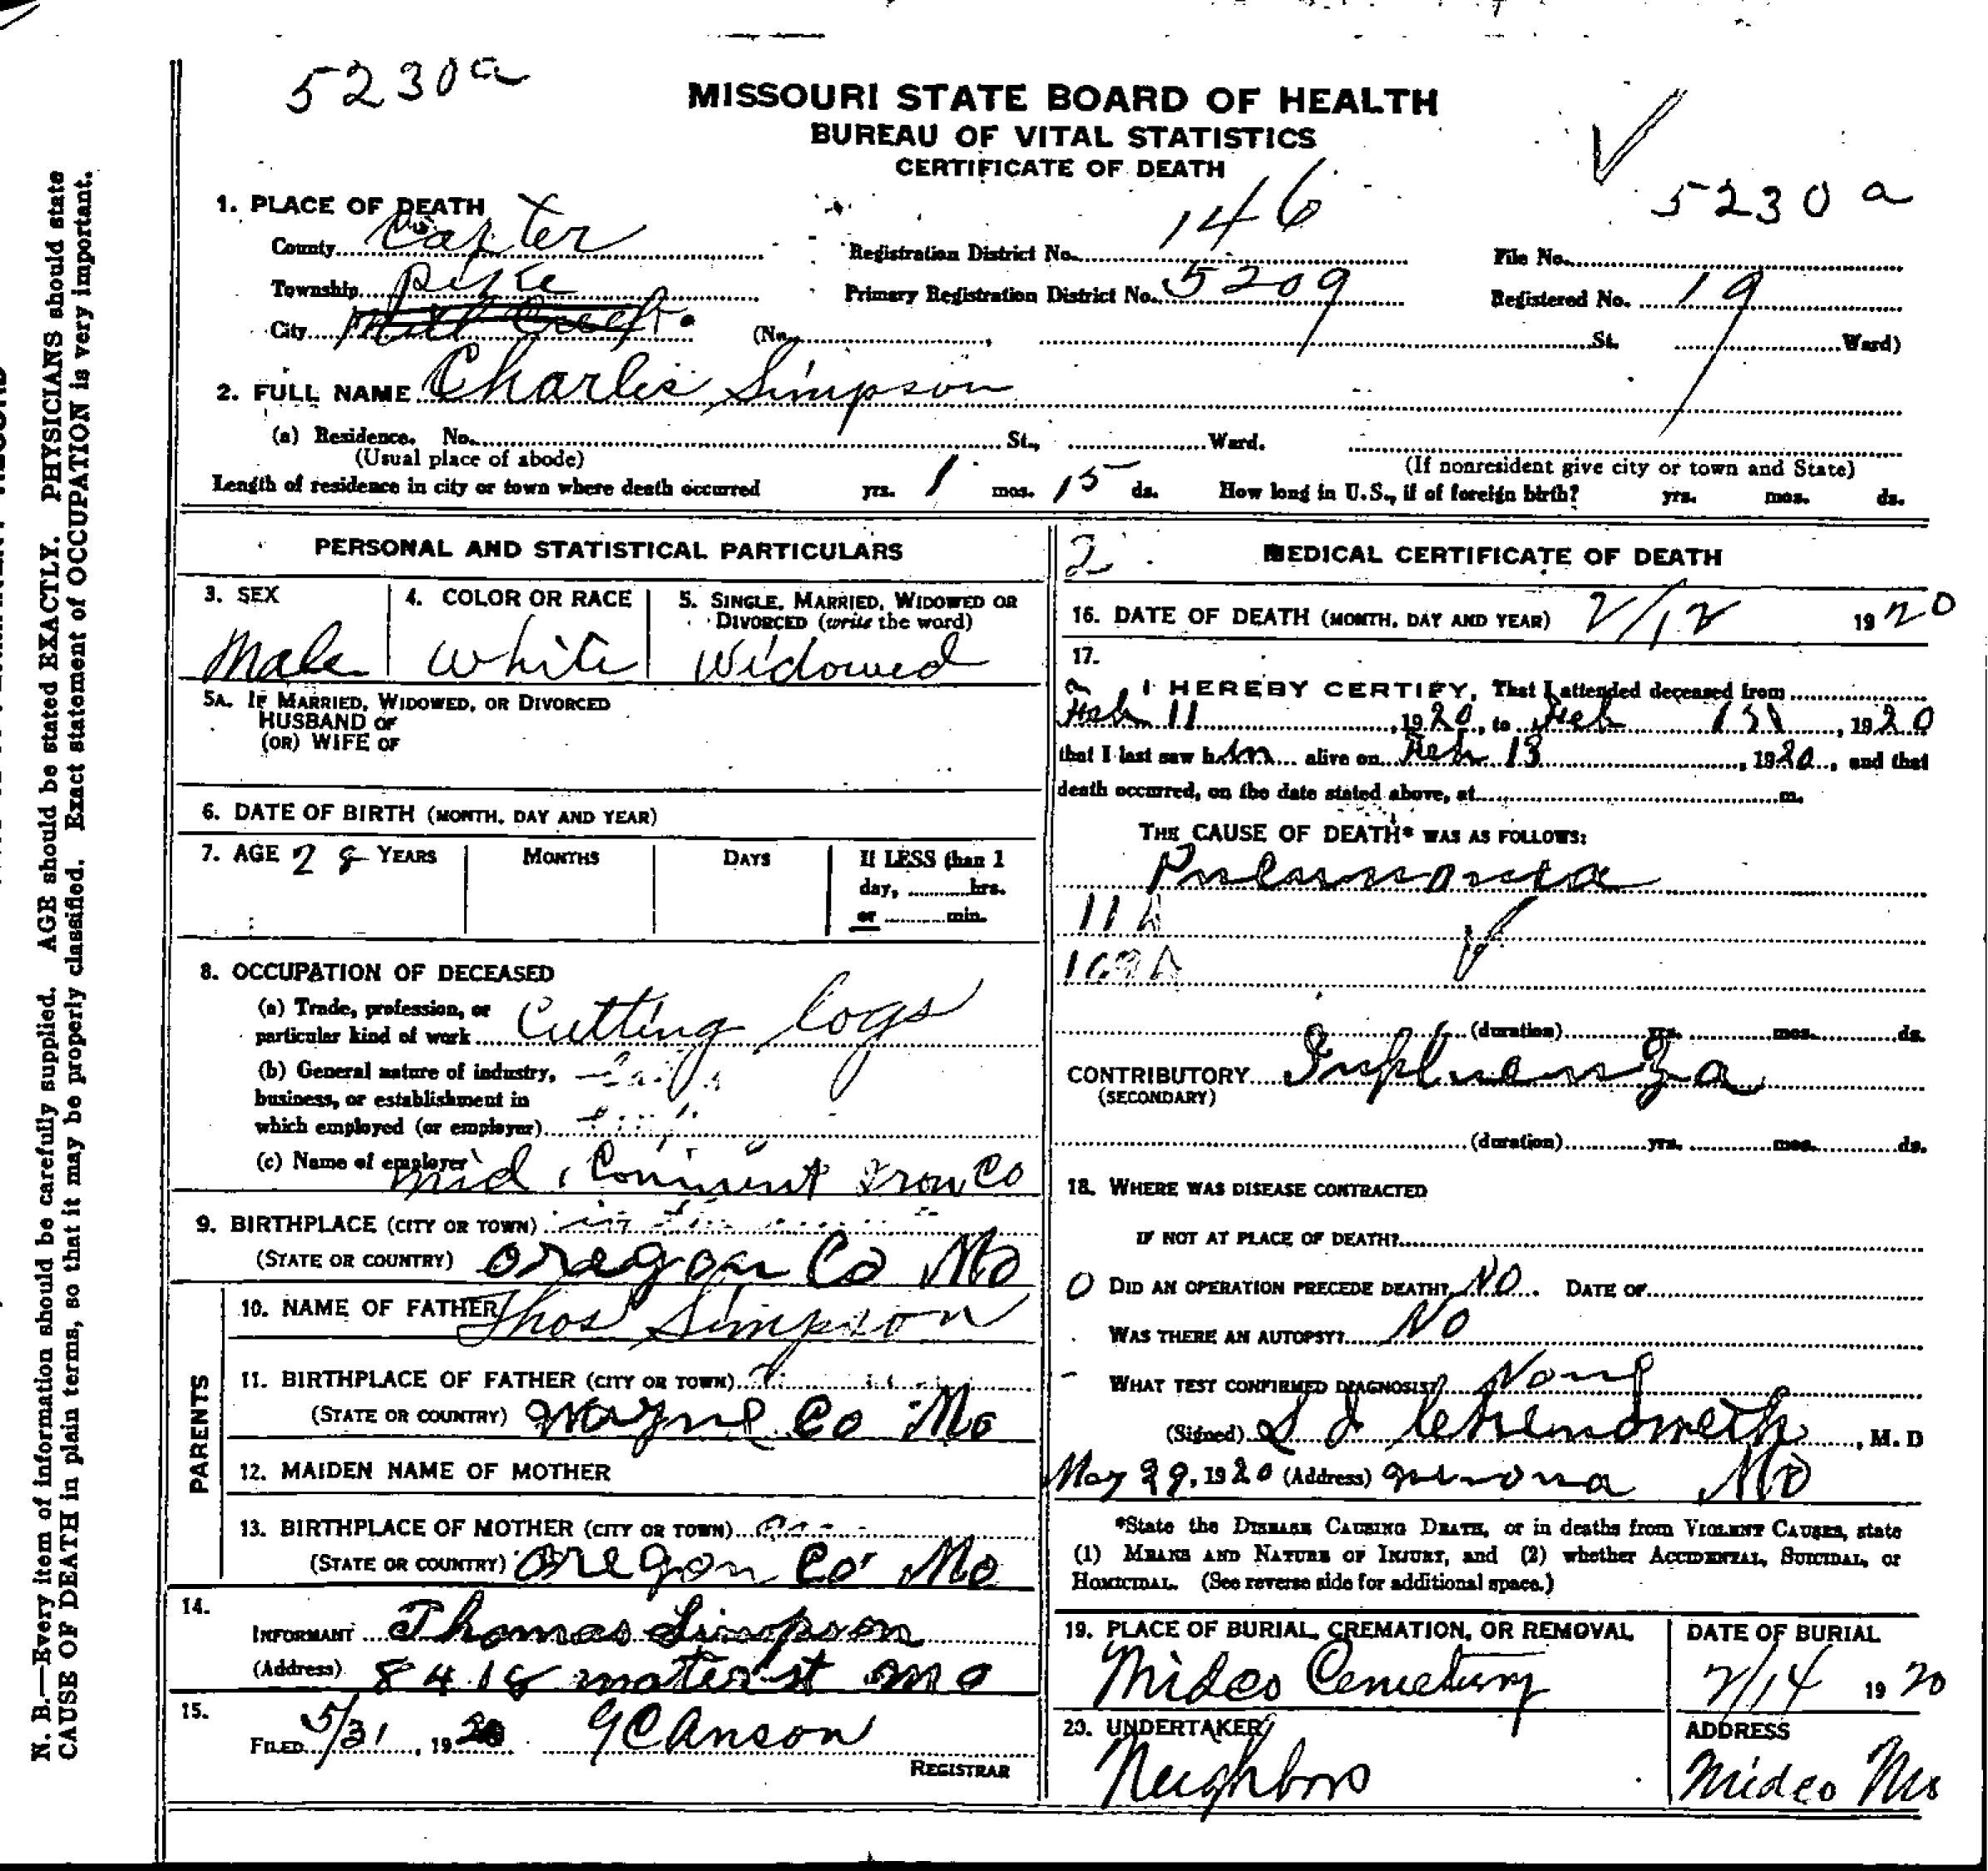 5230a
MISSOURI STATE BOARD OF HEALTH
BUREAU OF VITAL STATISTICS
CERTIFICATE OF DEATH
5230a
1. PLACE OF DEATH
County Carter Registration District No. 146 File No.
Township Pike Primary Registration District No. 5209 Registered No. 19
City (No. , St. Ward)
2. FULL NAME Charles Simpson
(a) Residence. No. St., Ward.
(Usual place of abode) (If nonresident give city or town and State)
Length of residence in city or town where death occurred yrs. 1 mos. 15 ds. How long in U.S., if of foreign birth? yrs. mos. ds.
PERSONAL AND STATISTICAL PARTICULARS
3. SEX
Male
4. COLOR OR RACE
White
5. SINGLE, MARRIED, WIDOWED OR
DIVORCED (write the word)
Widowed
5A. IF MARRIED, WIDOWED, OR DIVORCED
HUSBAND OF
(OR) WIFE OF
6. DATE OF BIRTH (MONTH, DAY AND YEAR)
7. AGE 28 YEARS MONTHS DAYS If LESS than 1
day, hrs.
or min.
8. OCCUPATION OF DECEASED
(a) Trade, profession, or
particular kind of work Cutting logs
(b) General nature of industry,
business, or establishment in
which employed (or employer)
(c) Name of employer Mid, Iron Co
9. BIRTHPLACE (CITY OR TOWN)
(STATE OR COUNTRY) Oregon Co Mo
PARENTS
10. NAME OF FATHER Thos Simpson
11. BIRTHPLACE OF FATHER (CITY OR TOWN)
(STATE OR COUNTRY) Wayne Co Mo
12. MAIDEN NAME OF MOTHER
13. BIRTHPLACE OF MOTHER (CITY OR TOWN)
(STATE OR COUNTRY) Oregon Co Mo
14.
INFORMANT Thomas Simpson
(Address) st Mo
15.
FILED 5/31, 1920 G C Anson
REGISTRAR
2
MEDICAL CERTIFICATE OF DEATH
16. DATE OF DEATH (MONTH, DAY AND YEAR) 2/12 1920
17.
I HEREBY CERTIFY, That I attended deceased from
Feb 11, 1920, to Feb , 1920
that I last saw him alive on Feb 13, 1920, and that
death occurred, on the date stated above, at m.
THE CAUSE OF DEATH* WAS AS FOLLOWS:
Pnlumonia
11A
(duration) yrs. mos. ds.
CONTRIBUTORY Inphuenza
(SECONDARY)
(duration) yrs. mos. ds.
18. WHERE WAS DISEASE CONTRACTED
IF NOT AT PLACE OF DEATH?
0 DID AN OPERATION PRECEDE DEATH? NO. DATE OF
WAS THERE AN AUTOPSY? NO
WHAT TEST CONFIRMED DIAGNOSIS? None
(Signed) , M. D
May 29, 1920 (Address) Mo
*State the DISEASE CAUSING DEATH, or in deaths from VIOLENT CAUSES, state
(1) MEANS AND NATURE OF INJURY, and (2) whether ACCIDENTAL, SUICIDAL, or
HOMICIDAL. (See reverse side for additional space.)
19. PLACE OF BURIAL, CREMATION, OR REMOVAL
Midco Cemetery
DATE OF BURIAL
2/14 1920
20. UNDERTAKER
Neighbors
ADDRESS
Midco Mo
N. B.—Every item of information should be carefully supplied. AGE should be stated EXACTLY. PHYSICIANS should state
CAUSE OF DEATH in plain terms, so that it may be properly classified. Exact statement of OCCUPATION is very important.